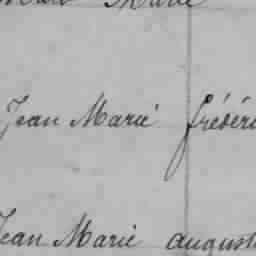 Marie
Jean Marie frédéri
Jean Marie august